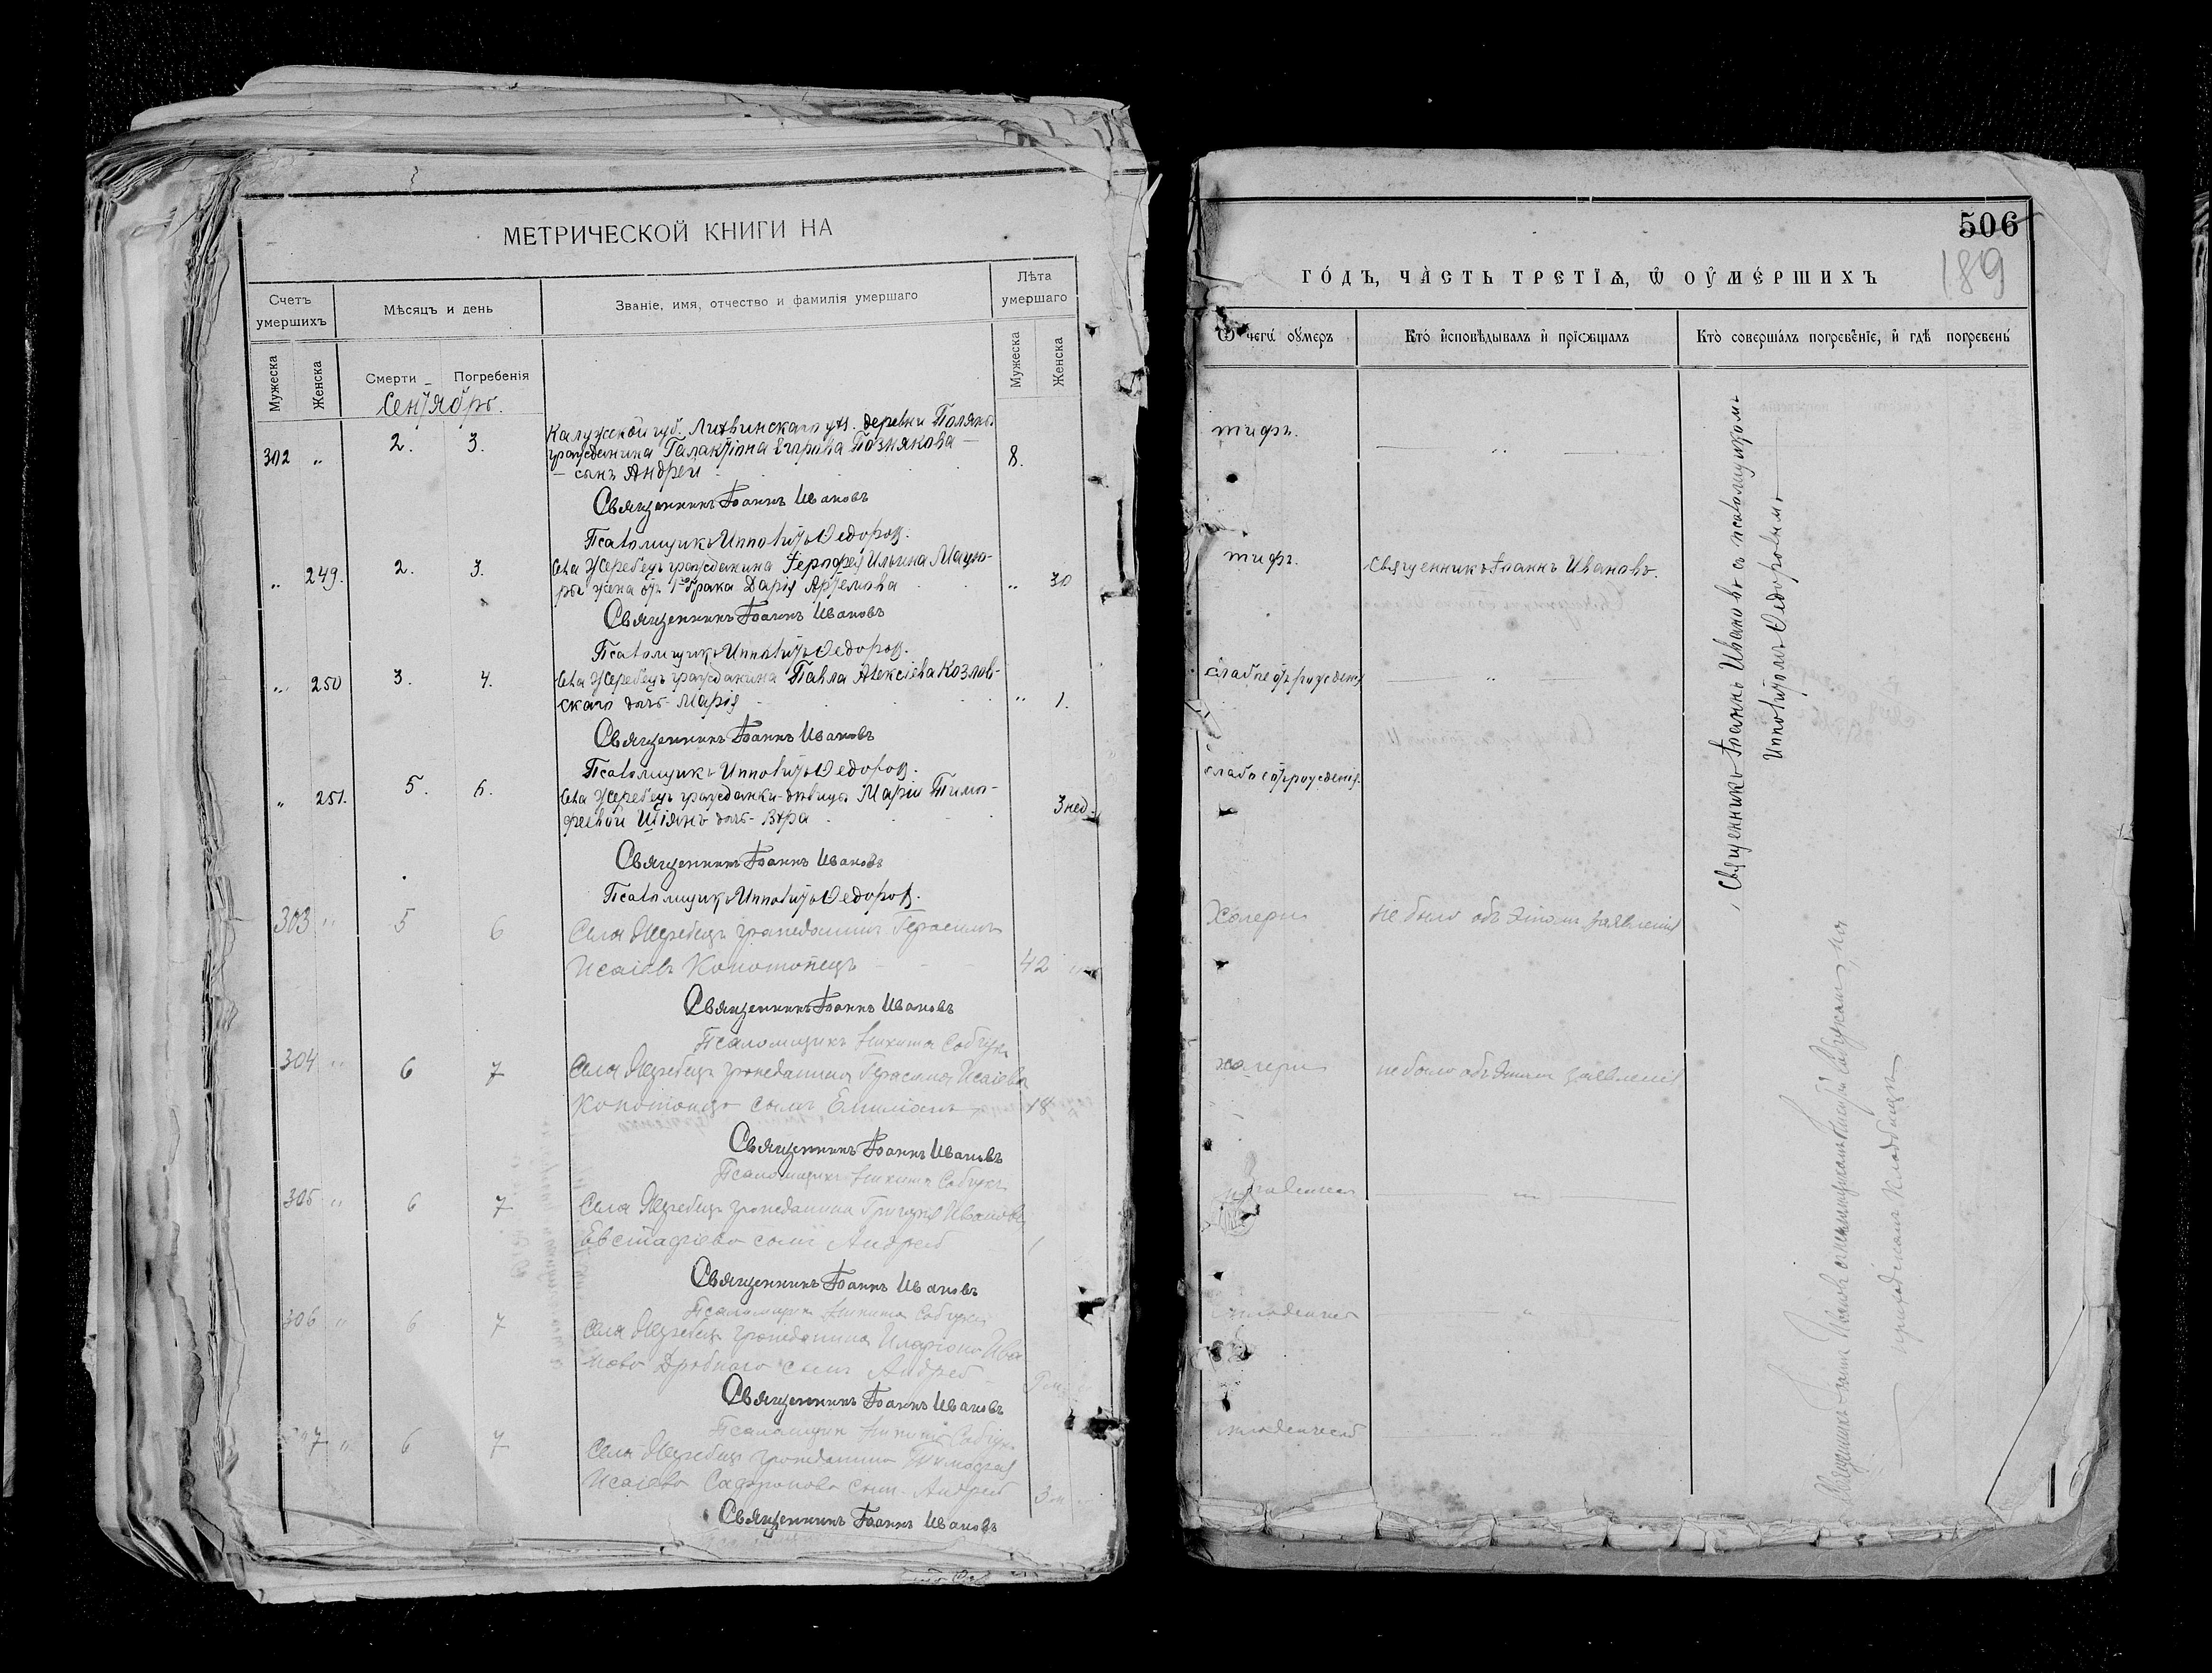 МЕТРИЧЕСКОЙ КНИГИ НА
Счетъ умершихъ
Мѣсяцъ и день
Званіе, имя, отчество и фамилія умершаго
Лѣта умершаго
Мужеска
Женска
Смерти
Погребенія
Мужеска
Женска
Сентябрь.
302 " 2. 3. Калужской губ. Лихвинскаго уѣз. деревни
гражданина Галактіона Егорова Познякова —
— сынъ Андрей 8.
Священникъ Іоаннъ Ивановъ
Псаломщикъ Ипполитъ Ѳедоров.
" 249. 2. 3. Села Жеребецъ гражданина Іероѳея Ильина
жена отъ 1го брака Дарія Артемова " 30
Священникъ Іоаннъ Ивановъ
Псаломщикъ Ипполитъ Ѳедоров.
" 250 3. 4. Села Жеребецъ гражданина Павла Алексіева Козлов-
скаго дочь Марія " 1.
Священникъ Іоаннъ Ивановъ
Псаломщикъ Ипполитъ Ѳедоров.
" 251. 5. 6. Села Жеребецъ гражданки-дѣвицы Маріи Тимо-
ѳеевой дочь Вѣра 3 нед.
Священникъ Іоаннъ Ивановъ
Псаломщикъ Ипполитъ Ѳедоров.
303 " 5 6 Села Жеребецъ гражданинъ Герасимъ
Исаіевъ Конотопецъ 42 "
Священникъ Іоаннъ Ивановъ
Псаломщикъ Никита
304 " 6 7 Села Жеребецъ гражданина Герасима Исаіева
Конотопецъ сынъ Емиліанъ 18
Священникъ Іоаннъ Ивановъ
Псаломщикъ Никита
305 " 6 7 Села Жеребецъ гражданина Григорія Иванова
Евстафіева сынъ Андрей 1
Священникъ Іоаннъ Ивановъ
Псаломщикъ Никита
306 " 6 7 Села Жеребецъ гражданина Иларіона Ива
нова Дробнаго сынъ Андрей
Священникъ Іоаннъ Ивановъ
Псаломщикъ Никита
7 " 6 7 Села Жеребецъ гражданина Тимоѳея
Исаіева Сафронова сынъ Андрей 3
Священникъ Іоаннъ Ивановъ
506
189
ГО́ДЪ, ЧА̀СТЬ ТРЕТІѦ, Ѿ ОУ҆МЕ́РШИХЪ
Ѿ чегѡ̀ оу҆́меръ
Кто̀ и҆сповѣ́дывалъ и҆ прїѡбща́лъ
Кто̀ соверша́лъ погребе́нїе, и҆ гдѣ̀ погребены̀
тифъ. — " —
тифъ. Священникъ Іоаннъ Ивановъ.
слабое отъ рожденія — " —
слабое отъ рожденія.
Холеры не было объ этомъ заявленія
холеры не было объ этомъ заявленія
младенческ — " —
младенческ — " —
младенческой — " —
Священникъ Іоаннъ Ивановъ съ псаломщикомъ
Ипполитомъ Ѳедоровымъ
Священникъ Іоаннъ Ивановъ съ псаломщикомъ Никитой на
приходскомъ кладбищѣ